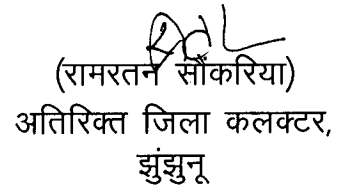 (रामरतन सौंकरिया)
अतिरिक्त जिला कलक्टर,
झुंझुनू